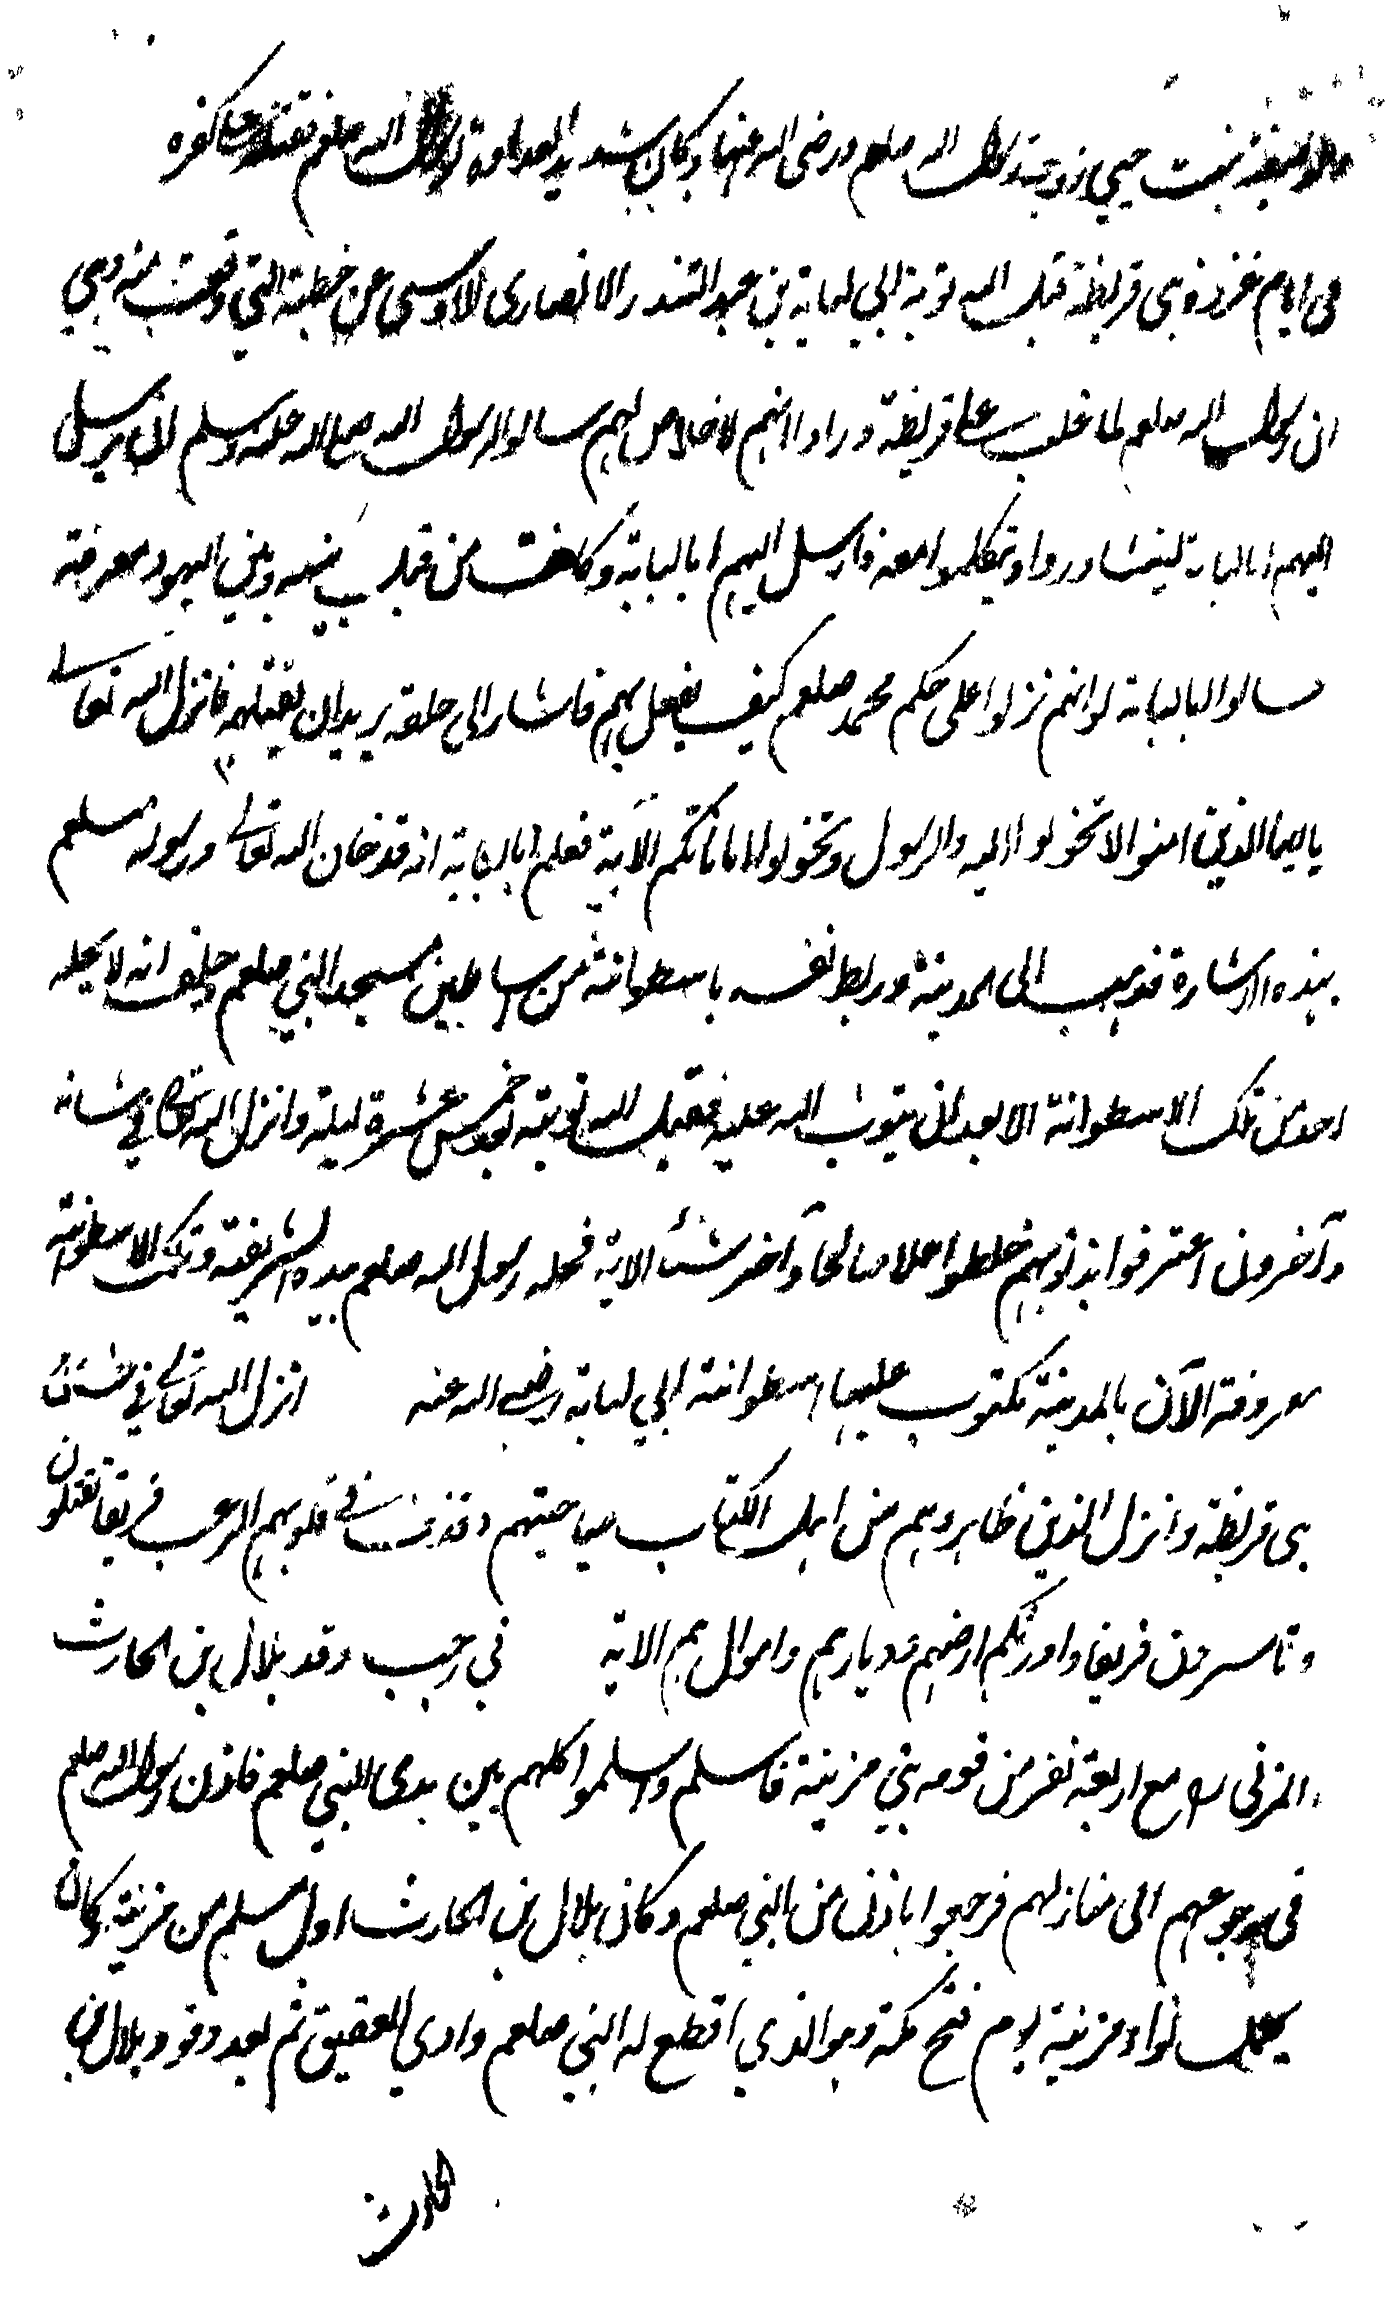 والد صفية بنت حيي زوجة رسول الله صلعم ورضى الله عنها وكان شديد العداوة لرسول الله صلعم فقتله على كفره
فى ايام غزوة بنى قريظة قبل الله توبة ابي لبابة بن عبد المنذر الانصارى الاوسى عن خطيئة التي وقعت منه وهي
ان رسول الله صلعم لما غلب على قريظة وراوا انهم لا خلاص لهم سالوا رسول الله صلى الله عليه وسلم لان يرسل
اليهم ابا لبابة ليتشاوروا ويتكلموا معه فارسل اليهم ابا لبابة وكانت من قبل بينه وبين اليهود معرفة
سالوا ابا لبابة لو انهم نزلوا على حكم محمد صلعم كيف يفعل بهم فاشار الى حلقه يريد ان يقتلهم فانزل الله تعالى
يا ايها الذين امنوا لا تخونوا الله والرسول وتخونوا اماناتكم الآية فعلم ابا لبابة انه قد خان الله تعالى ورسوله صلعم
بهذه الاشارة فذهب الى المدينة وربط نفسه باسطوانة من اساطين مسجد النبي صلعم وحلف انه لا يحله
احد من تلك الاسطوانة الا بعد ان يتوب الله عليه فقبل الله توبته بعد خمس عشرة ليلة وانزل الله تعالى في شانه
وآخرون اعترفوا بذنوبهم خلطوا عملا صالحا وآخر سيئا الاية فحله رسول الله صلعم بيده الشريفة وتلك الاسطوانة
معروفة الآن بالمدينة مكتوب عليها اسطوانة ابي لبابة رضي الله عنه انزل الله تعالى في شان
بنى قريظة وانزل الذين ظاهروهم من اهل الكتاب صياصيهم وقذف في قلوبهم الرعب فريقا تقتلون
وتاسرون فريقا واورثكم ارضهم وديارهم واموالهم الاية في رجب وفد بلال بن الحارث
المزنى مع اربعة نفر من قومه بني مزينة فاسلم واسلموا كلهم بين يدى النبي صلعم فاذن رسول الله صلعم
فى رجوعهم الى منازلهم فرجعوا باذن من النبي صلعم وكان بلال بن الحارث اول مسلم من مزينة وكان
يحمل لواء مزينة يوم فتح مكة وهو الذي اقطع له النبي صلعم وادي العقيق ثم بعد وفود بلال بن
الحارث